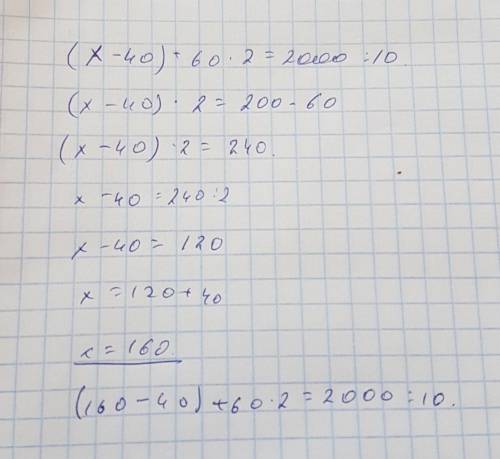 (x - 40) - 60 · 2 = 2000 : 10.
(x - 40) · 2 = 200 - 60
(x - 40) · 2 = 240.
x - 40 = 240 : 2
x - 40 = 120
x = 120 + 40
x = 160.
(160 - 40) + 60 · 2 = 2000 : 10.